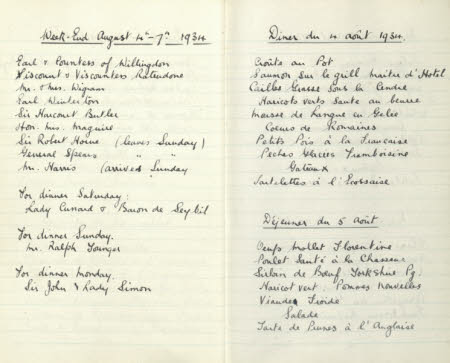 Week-End August 4th-7th 1934
Earl & Countess of Willingdon
Viscount & Viscountess
Mr. & Mrs. Wigram
Earl Winterton
Sir Harcourt Butler
Hon. Mrs. Maguire
Sir Robert Horne (leaves Sunday)
General Spears " "
Mr. Harris (arrives Sunday
For dinner Saturday:
Lady Cunard & Baron de
For dinner Sunday.
Mr. Ralph Younger
For dinner Monday.
Sir John & Lady Simon
Diner du 4 août 1934.
Croûte au Pot
Saumon sur le grill Maitre d'Hotel
Cailles Grasse sous la Cendre
Haricots verts Sauté au beurre
Mousse de Langue en Gelée
Coeurs de Romaines
Petits Pois à la Francaise
Peches Glacées Framboisine
Gateaux
Tartelettes à l'Ecossaise
Déjeuner du 5 Août
Oeufs Mollet Florentine
Poulet Sauté à la Chasseur
Sirloin de Bœuf Yorkshire Pg.
Haricot vert. Pommes nouvelles
Viandes Froide
Salade
Tarte de Prunes à l'Anglaise